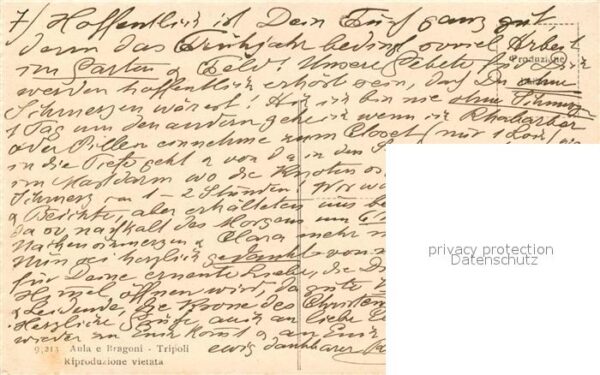 7/ Hoffentlich ist Dein Fuß ganz gut
denn das Frühjahr bedingt soviel Arbeit
im Garten & Feld! Unsere Gebete für Dich
Produzione
werden hoffentlich erhört sein, daß Du ohne
Schmerzen wärest! Ach ich bin nie ohne Schmerz
1 Tag um den andern gehe ich wenn ich Rhabarber
oder Pillen einnehme zum Closet (nur 1
in die Tiefe geht & von da in den
im Mastdarm wo die Knoten
Schmerz 1-2 Stunden! Wir
& Beichte, aber erhälteten uns
da so naßkalt des Morgens um
Nackenschmerzen & Clara mehr
Nun sei herzlich gedankt von
für Deine erneute Liebe, die Dir
Himmel öffnen wird, da gute
& Leidende, die Krone des Christen
Herzliche Grüße auch an liebe
wieder zu Euch kommt & an Euch
ewig dankbarer
9,213 Aula e Bragoni - Tripoli
Riproduzione vietata
privacy protection
Datenschutz